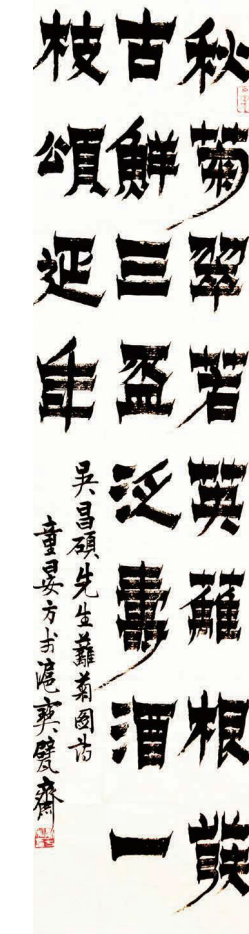 秋菊翠若英蘺根
古鮮三盃泛壽酒一
枝頌延年
吴昌碩先生蘺菊圖詩
童晏方滬甓齋